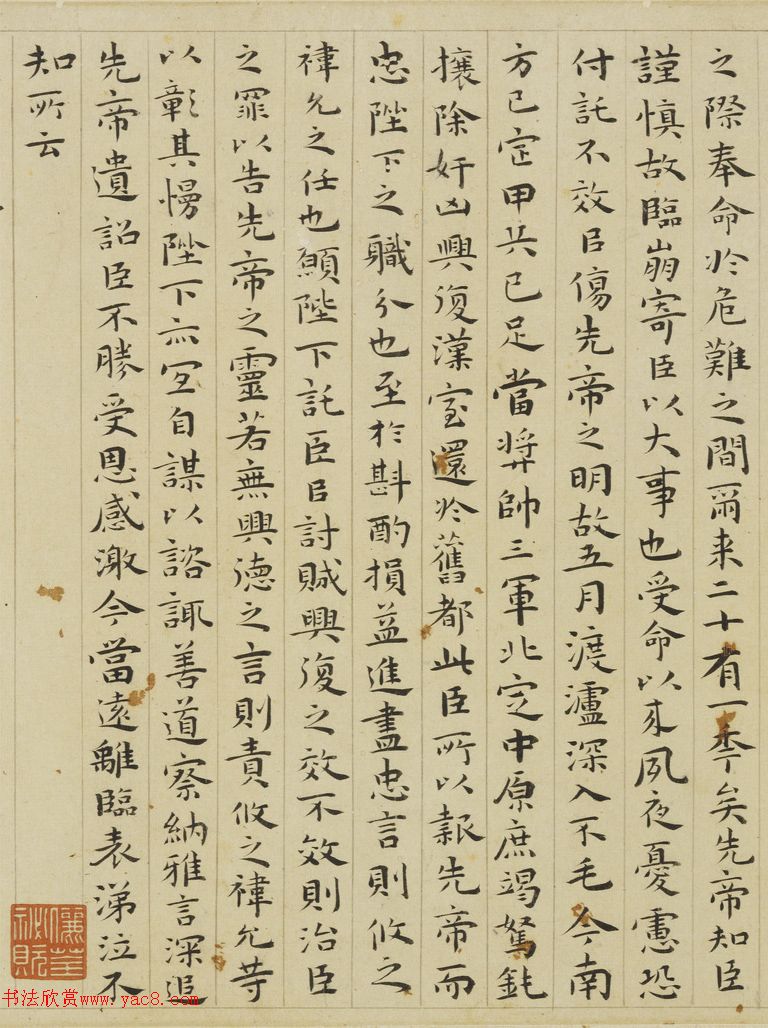 之際奉命於危難之間爾来二十有一年矣先帝知臣
謹慎故臨崩寄臣以大事也受命以来夙夜憂慮恐
付託不效臣傷先帝之明故五月渡瀘深入不毛今南
方已定甲兵已足當奬帥三軍北定中原庶竭駑鈍
攘除奸凶興復漢室還於舊都此臣所以報先帝而
忠陛下之職分也至於斟酌損益進盡忠言則攸之
禕允之任也願陛下託臣臣討賊興復之效不效則治臣
之罪以告先帝之靈若無興德之言則責攸之禕允等
以彰其慢陛下亦宜自謀以諮諏善道察納雅言深追
先帝遺詔臣不勝受恩感激今當遠離臨表涕泣不
知所云
书法欣赏www.yac8.com